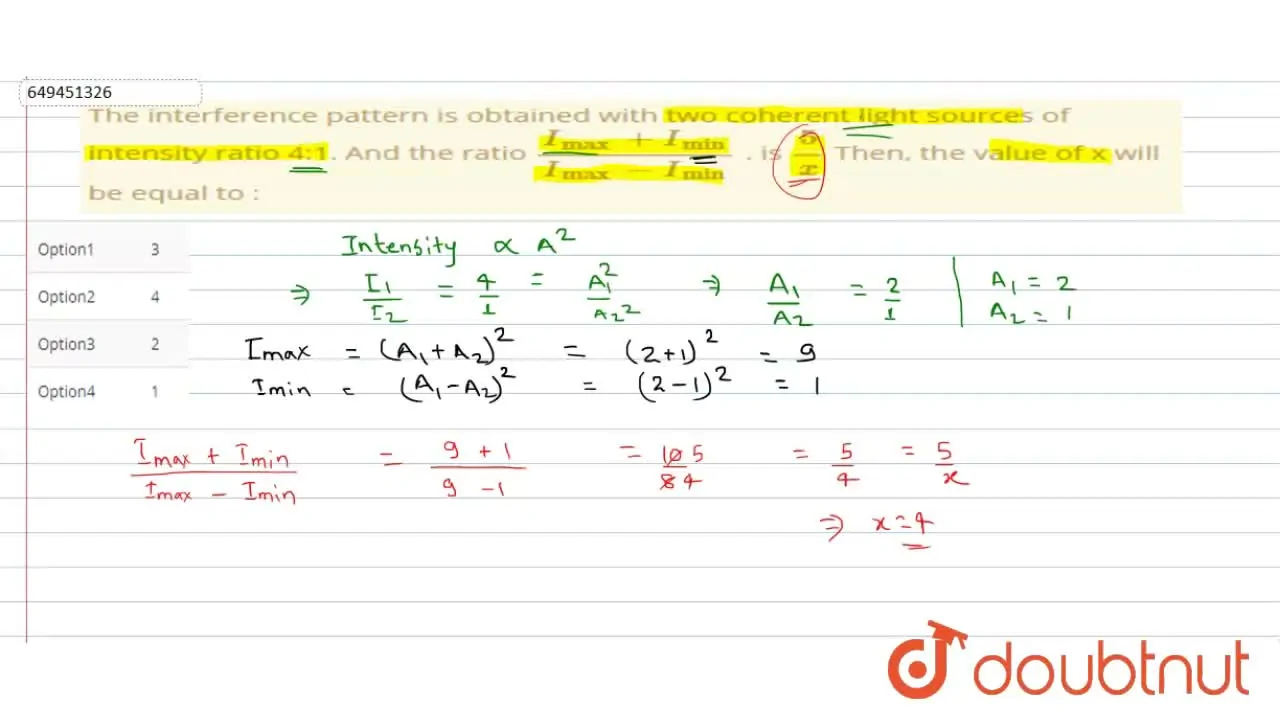 649451326
The interference pattern is obtained with two coherent light sources of
intensity ratio 4:1. And the ratio (I_max + I_min)/(I_max − I_min) . is 5/x Then, the value of x will
be equal to :
Option1 3
Option2 4
Option3 2
Option4 1
Intensity ∝ A²
⇒ I₁/I₂ = 4/1 = A₁²/A₂² ⇒ A₁/A₂ = 2/1 | A₁ = 2
A₂ = 1
Imax = (A₁+A₂)² = (2+1)² = 9
Imin = (A₁−A₂)² = (2−1)² = 1
Imax + Imin / Imax − Imin = 9 + 1 / 9 − 1 = 10 5 / 8 4 = 5/4 = 5/x
⇒ x = 4
doubtnut